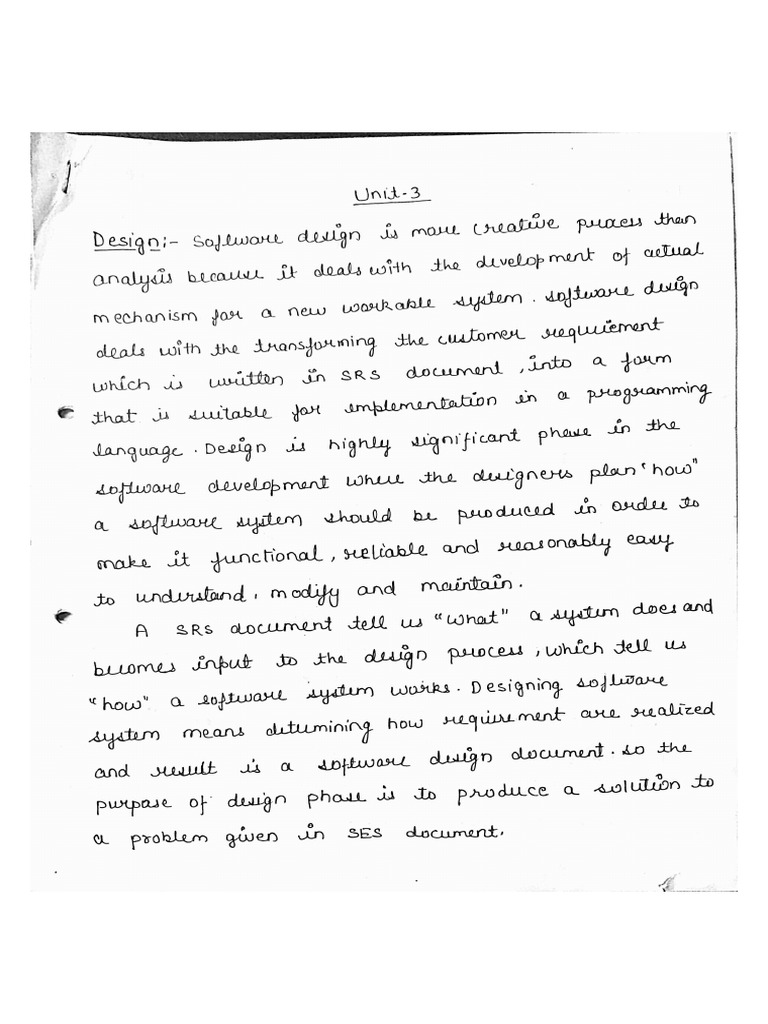 Unit-3
Design:- Software design is more creative process than
analysis because it deals with the development of actual
mechanism for a new workable system. Software design
deals with the transforming the customer requirement
which is written in SRS document, into a form
that is suitable for implementation in a programming
language. Design is highly significant phase in the
software development where the designers plan "how"
a software system should be produced in order to
make it functional, reliable and reasonably easy
to understand, modify and maintain.
A SRS document tell us "what" a system does and
becomes input to the design process, which tell us
"how" a software system works. Designing software
system means determining how requirement are realized
and result is a software design document. So the
purpase of design phase is to produce a solution to
a problem given in SES document.